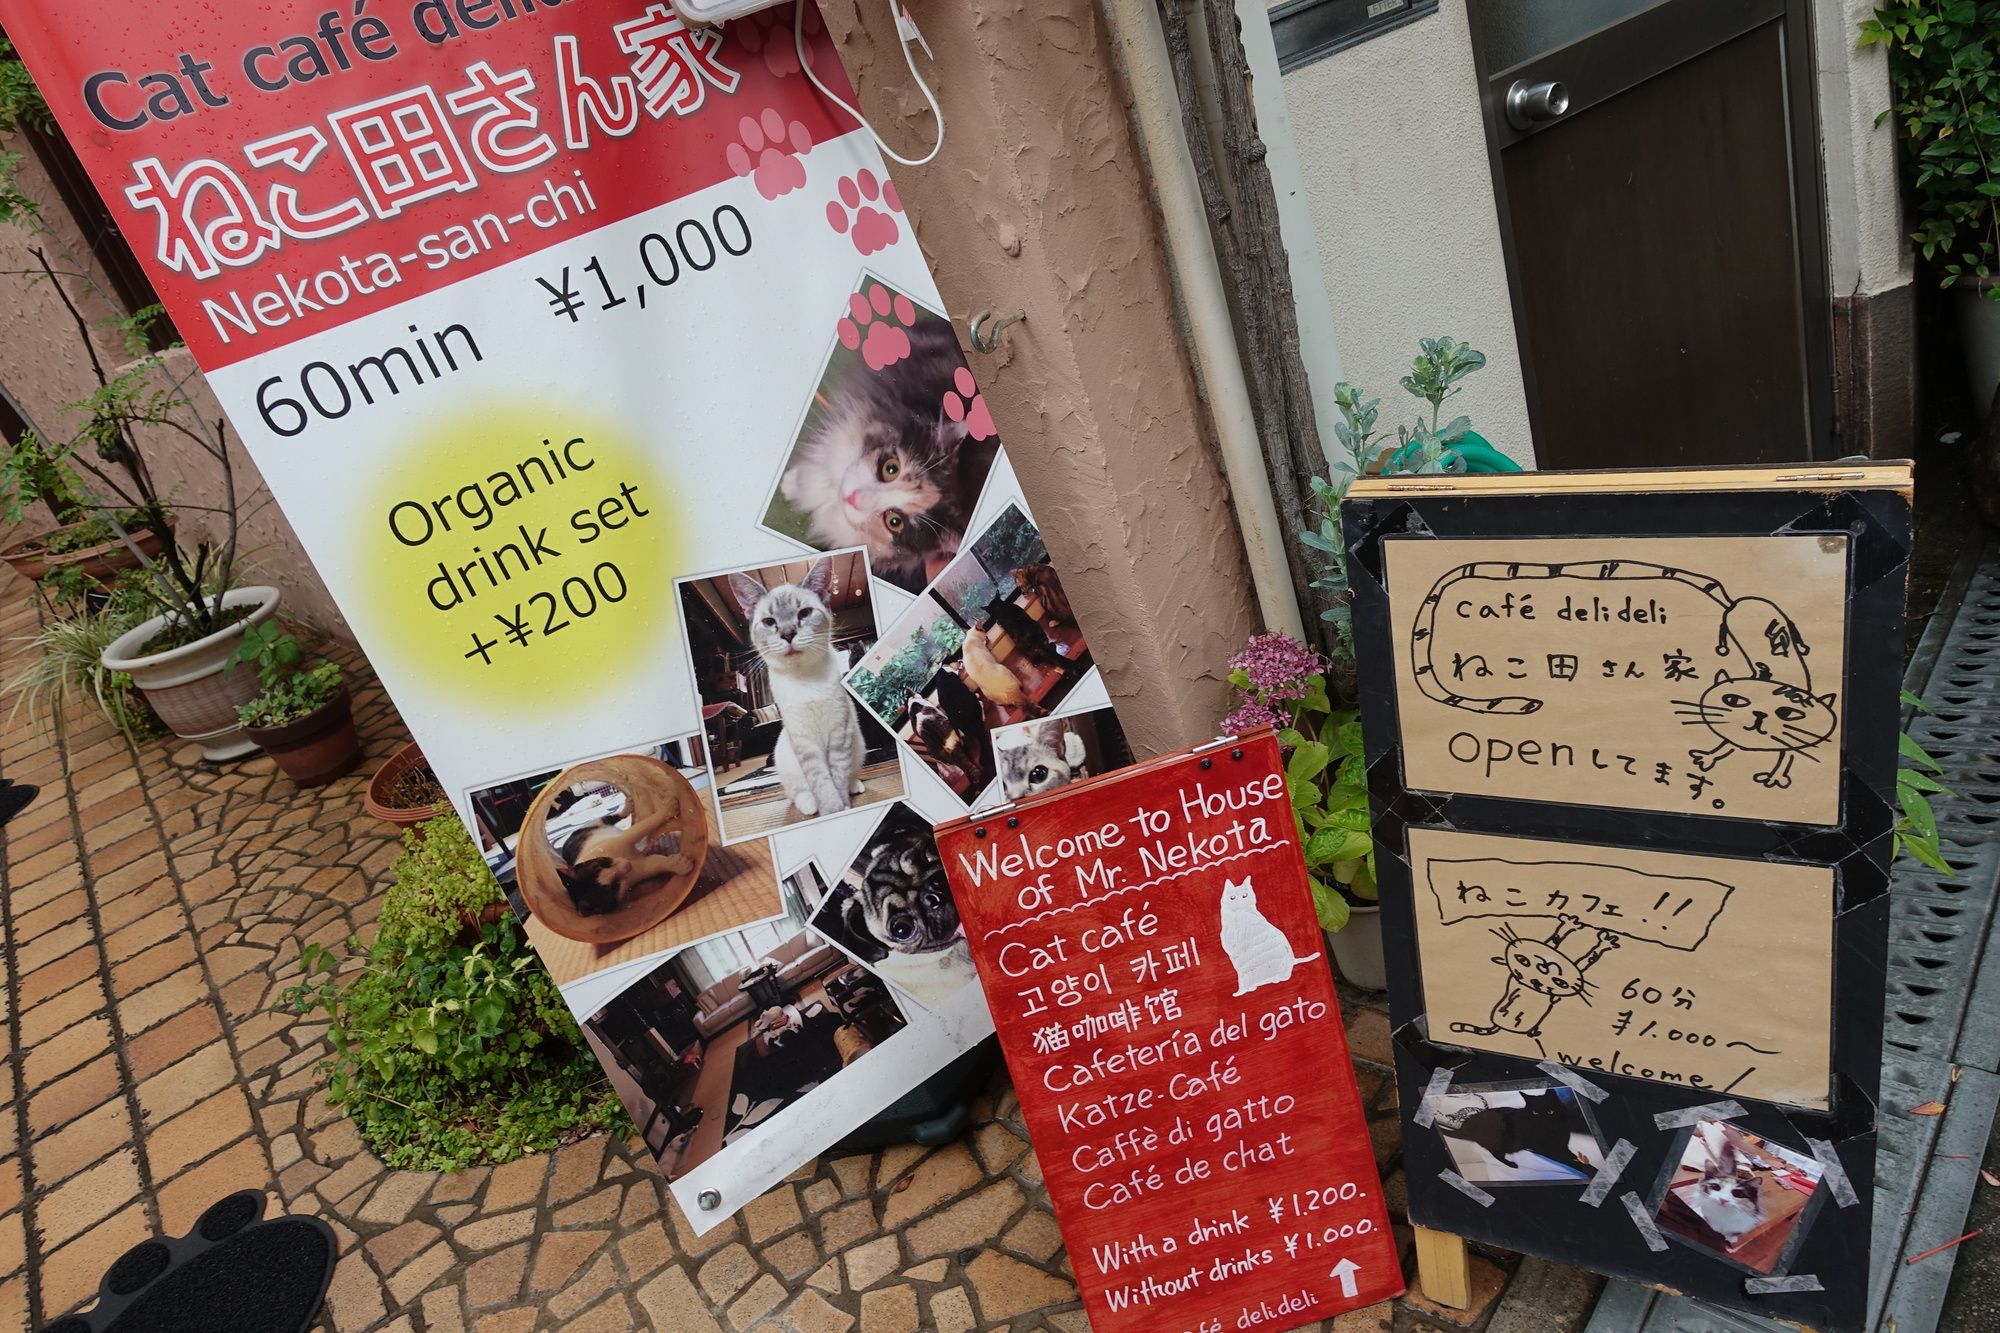 Cat café deli
ねこ田さん家
Nekota-san-chi
60min ¥1,000
Organic
drink set
+¥200
Welcome to House
of Mr. Nekota
Cat café
고양이 카페
猫咖啡馆
Cafetería del gato
Katze-Café
Caffè di gatto
Café de chat
With a drink ¥1.200.
Without drinks ¥1.000.
café delideli
café delideli
ねこ田さん家
openしてます。
ねこカフェ!!
60分
¥1.000〜
welcome!